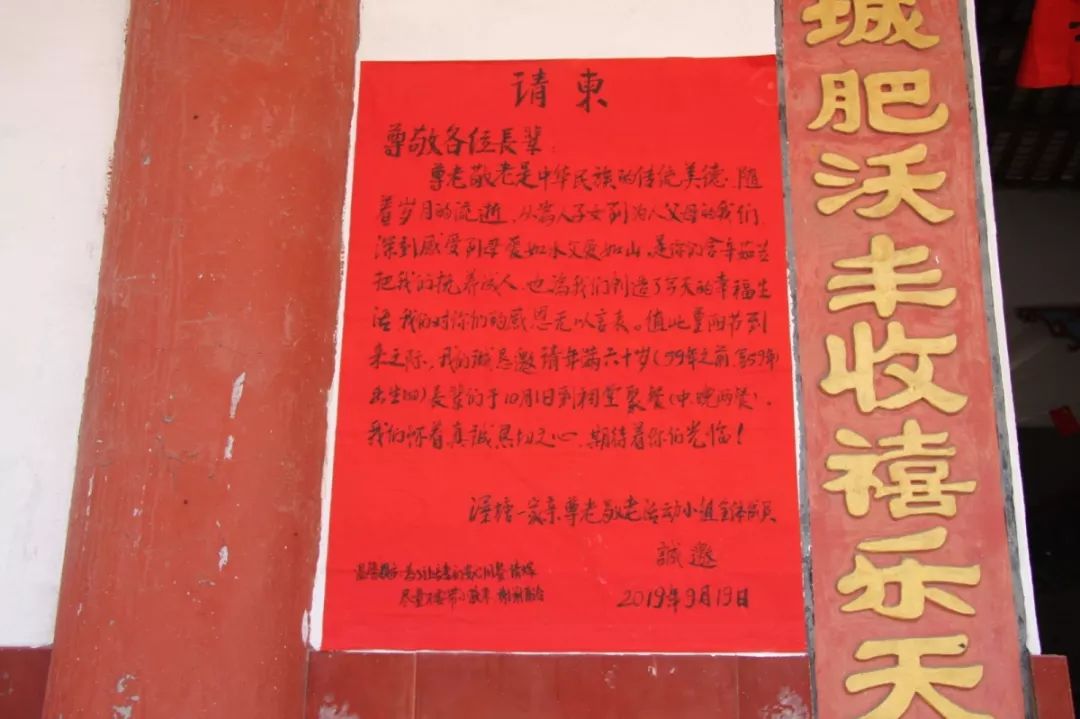 请柬
尊敬各位長辈:
尊老敬老是中华民族的传统美德.随
着岁月的流逝、从為人子女到为人父母的我们,
深刻感受到母爱如水父爱如山,是你们含辛茹苦
把我们抚养成人、也為我们创造了今天的幸福生
活 我们对你们的感恩无以言表。值此重阳节到
来之际,我们诚恳邀请年满六十岁(59年之前至59年
出生的)長辈们于10月1日到祠堂聚餐(中.晚两餐)、
我们怀着真誠恳切之心、期待着你们光临!
塘一家亲尊老敬老活动小组全体成员
誠邀
2019年9月19日
温馨提示:为了让長者们安心用餐 请媒
尽量不要带小孩来 谢谢
城肥沃丰收禧乐天